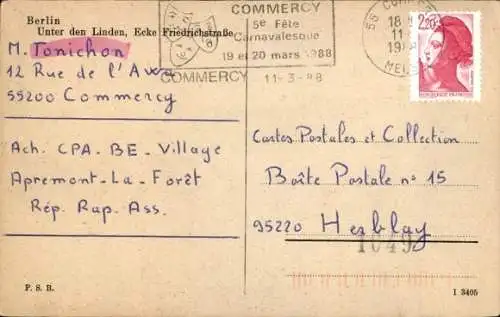 Berlin
Unter den Linden, Ecke Friedrichstraße
M. Tonichon
12 Rue de l'Ave
55200 Commercy
Ach. CPA. BE. Village
Apremont-La-Forêt
Rép. Rap. Ass.
P. S. B.
COMMERCY
5e Fête
Carnavalesque
19 et 20 mars 1988
COMMERCY 11-3-88
55
18
11-
19
2,20
Cartes Postales et Collection
Boîte Postale n° 15
95220 Herblay
1049
I 3405